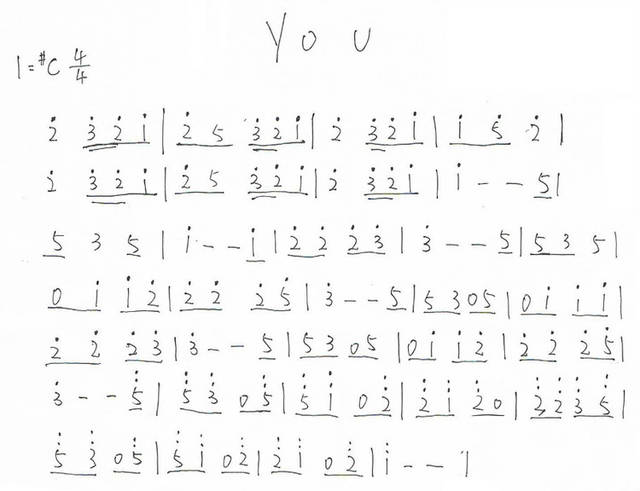 YOU
1=#C 4/4
2̇ 3̇ 2̇ 1̇ | 2̇ 5 3̇ 2̇ 1̇ | 2̇ 3̇ 2̇ 1̇ | 1̇ 5̇ 2̇ |
2̇ 3̇ 2̇ 1̇ | 2̇ 5 3̇ 2̇ 1̇ | 2̇ 3̇ 2̇ 1̇ | 1̇ - - 5 |
5 3 5 | 1̇ - - 1̇ | 2̇ 2̇ 2̇ 3̇ | 3̇ - - 5 | 5 3 5 |
0 1̇ 1̇ 2̇ | 2̇ 2̇ 2̇ 5̇ | 3̇ - - 5 | 5 3 0 5 | 0 1̇ 1̇ 1̇ |
2̇ 2̇ 2̇ 3̇ | 3̇ - - 5 | 5 3 0 5 | 0 1̇ 1̇ 2̇ | 2̇ 2̇ 2̇ 5̇ |
3̇ - - 5̇ | 5̇ 3̇ 0 5̇ | 5̇ 1̇ 0 2̇ | 2̇ 1̇ 2̇ 0 | 2̇ 2̇ 3̇ 5̇ |
5̇ 3̇ 0 5̇ | 5̇ 1̇ 0 2̇ | 2̇ 1̇ 0 2̇ | 1̇ - - |